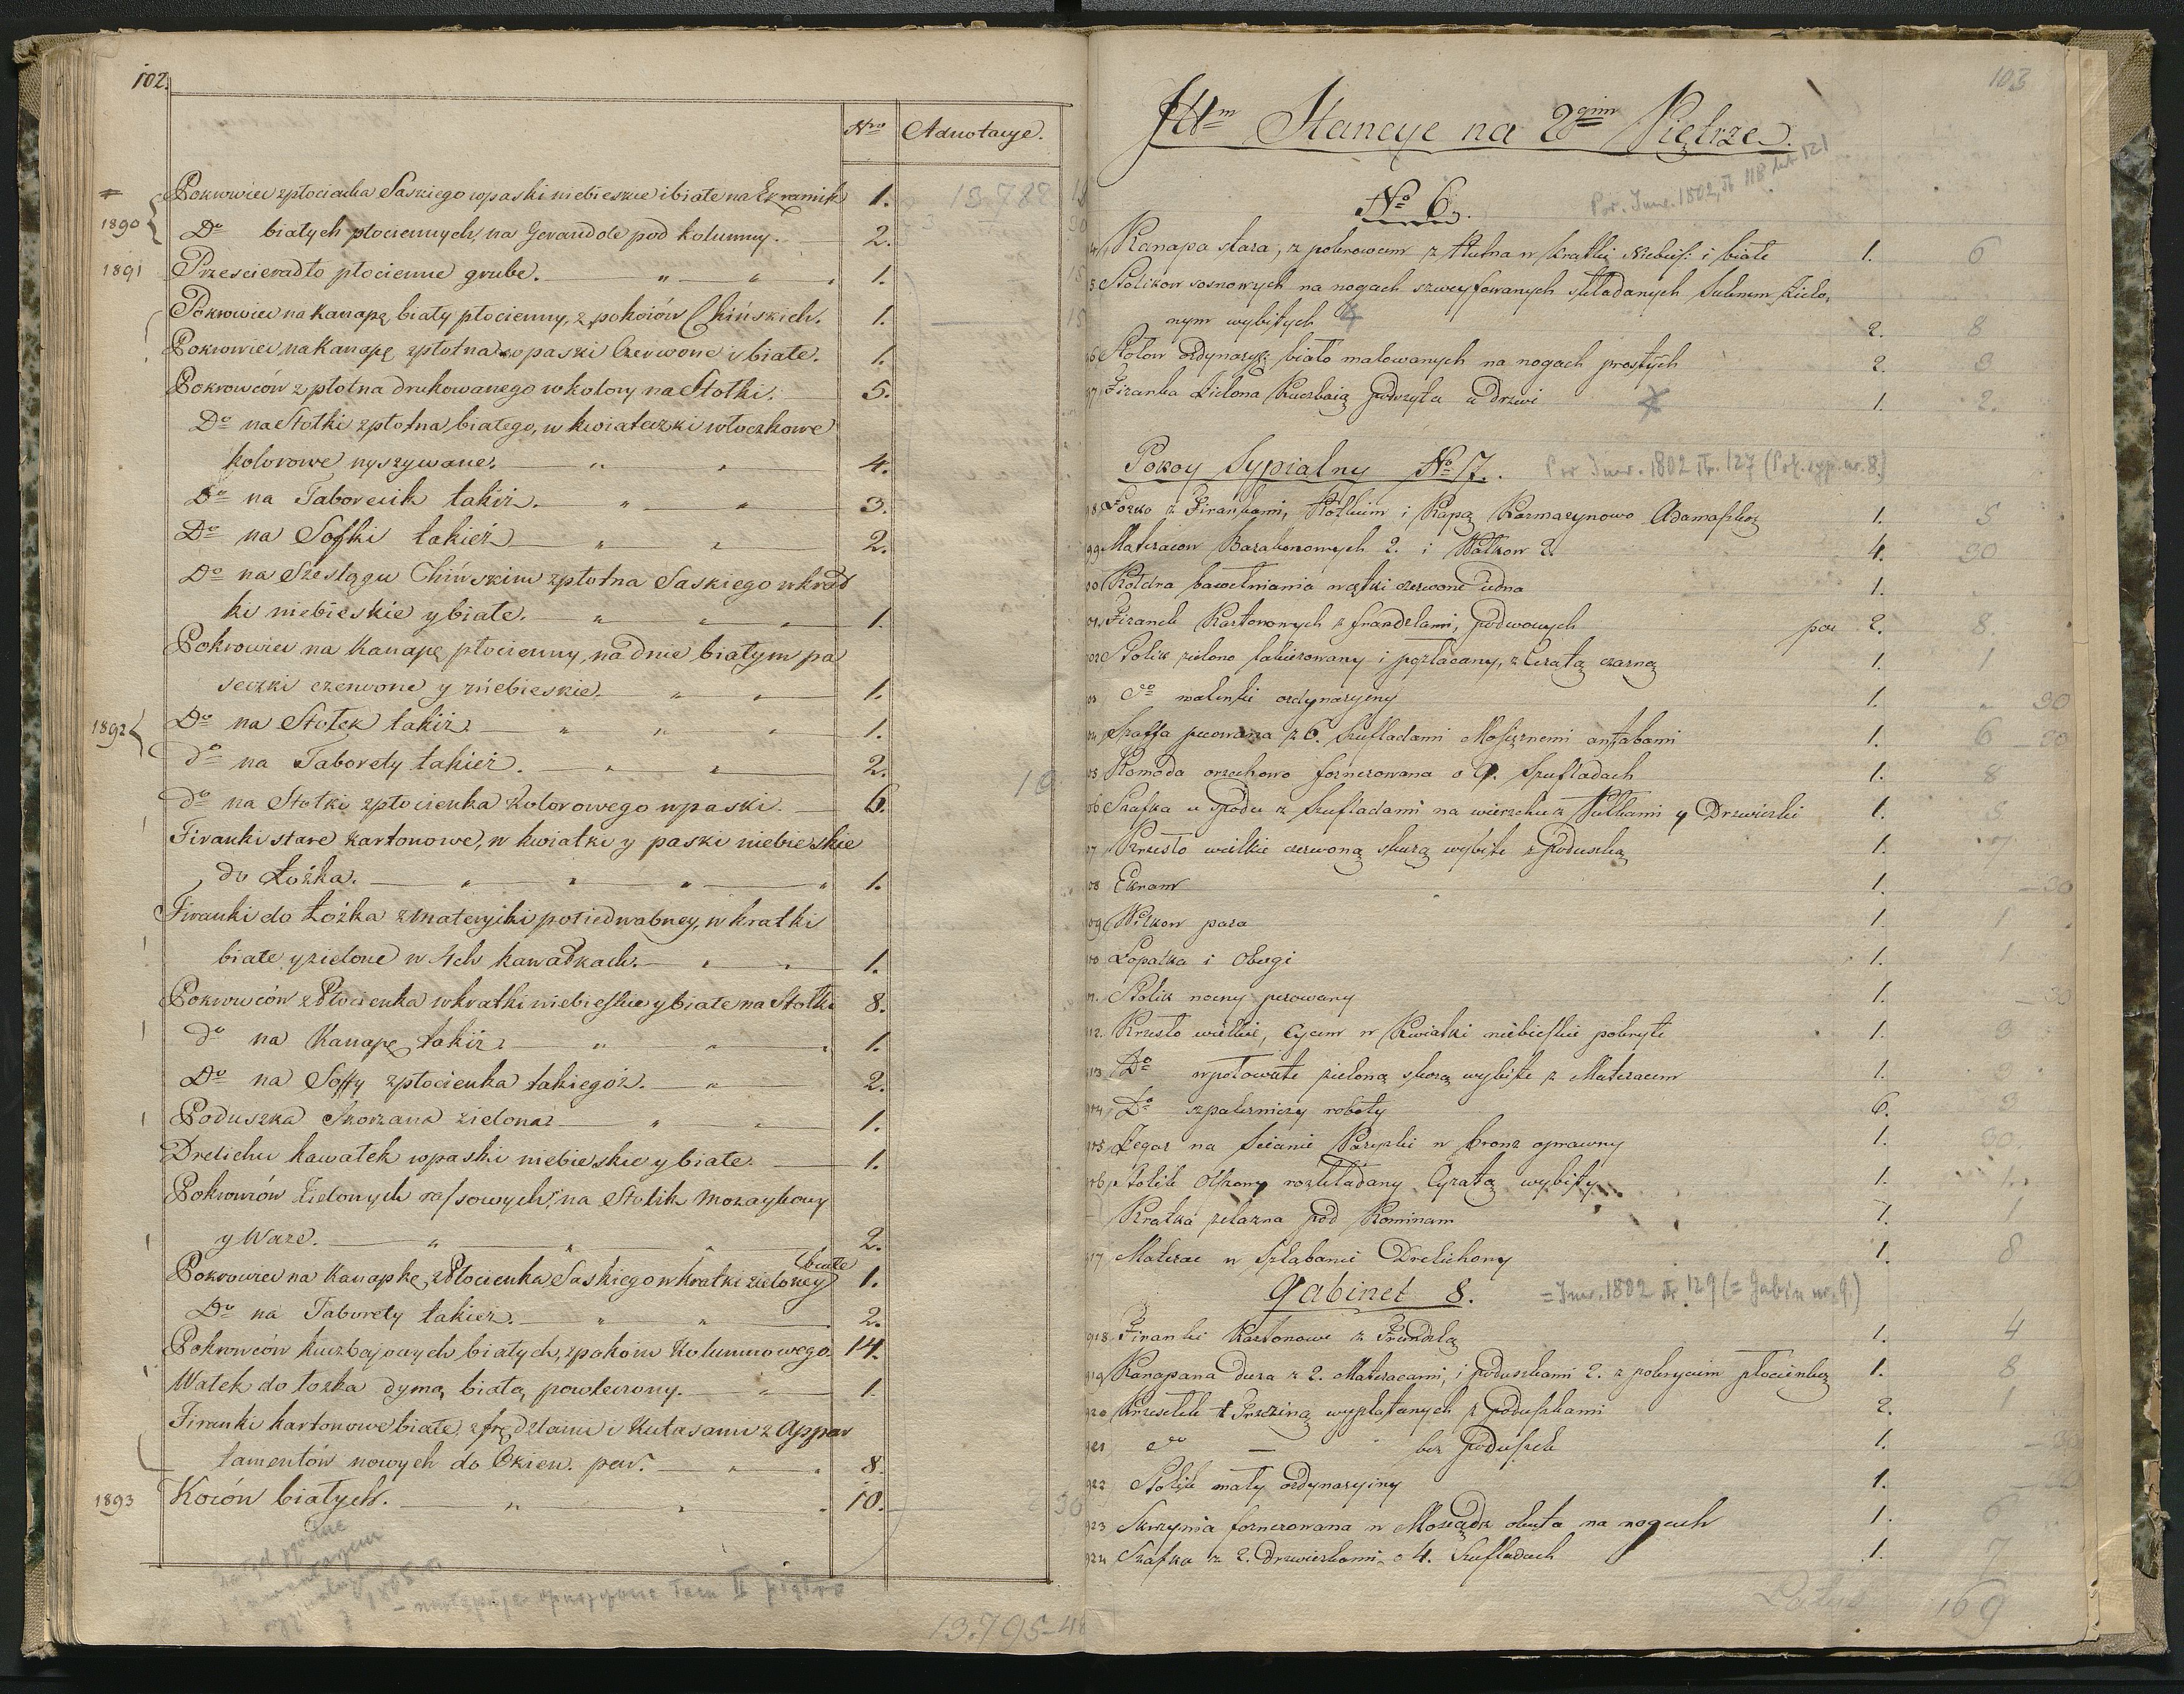 102.
Nro Adnotacye.
Pokrowiec z płocienka Saskiego w paski niebieskie i białe na Ekranik 1.
13.782
1890 Do białych płociennych na Gerandole pod kolumny. 2.
1891 Przescieradło płocienne grube. " " 1.
Pokrowiec na Kanapę biały płocienny, z pokoiów Chińskich. 1.
Pokrowiec na Kanapę z płotna w paski Czerwone i białe. 1.
Pokrowców z płotna drukowanego w kolory na Stołki. 5.
Do na Stołki z płotna białego, w kwiateczki włoczkowe
kolorowe wyszywane. " " 4.
Do na Taborecik takiż. " " 3.
Do na Sofki takież " " 2.
Do na Szeslągu Chińskim z płotna Saskiego w krat
ki niebieskie y białe. " " " 1.
Pokrowiec na Kanapę płocienny, na dnie białym pa
seczki czerwone y niebieskie. " " 1.
1892 Do na Stołek takiż. " " " 1.
do na Taborety takież. " " 2.
do na Stołki z płocienka kolorowego w paski. 6.
Firanki stare kartonowe, w kwiatki y paski niebieskie
do Łóżka. " " " " 1.
Firanki do Łóżka z materyiki połiedwabney, w kratki
białe y zielone w 4ch kawałkach. " " 1.
Pokrowców z Płocienka w kratki niebieskie y białe na Stołki 8.
do na Kanapę takiż. " " " 1.
Do na Soffy z płocienka takiegoż. " 2.
Poduszka Skorzana zielona " " 1.
Drelichu kawałek w paski niebieskie y białe. 1.
Pokrowców Zielonych rassowych, na Stolik mozaykowy
y Wazę. " " " 2.
białe
Pokrowiec na Kanapkę, z Płocienka Saskiego w kratki zielone y 1.
Do na Taborety takież. " " 2.
Pokrowców kuczbajowych białych, z pokoiu Kolumnowego 14.
Wałek do łożka dymą białą powleczony. " 1.
Firanki kartonowe białe, z frędzlami i Kutasami z Appar
tamentów nowych do Okien. par. " " 8.
1893 Koców białych. " " " 10.
następuje opuszczone tam II piętro
13.795-48
103
Item Stancye na 2giem Piętrze.
Por. Inw. 1802, str 118 lub 121
No 6.
Kanapa stara, z pokrowcem z Płutna w kratki Niebies: i białe 1. 6
Stolikow sosnowych na nogach szweyfowanych składanych suknem Zielo,
nym wybitych 2. 8
Stołow ordynaryi: biało malowanych na nogach prostych 2. 3
Firanka Zielona Kuczbaią podszyta u Drzwi 1. 2.
Pokoy Sypialny No 7. Por Inw. 1802 str. 127 (Pok. syp. nr. 8.)
Łożko z Firankami, Kołkiem i Kapą Karmazynowo Adamaszkową 1. 5
Materacow Barakanowych 2. i Wałkow 2. 4. 30
Kołdra bawełniania w cętki czerwone iedna 1.
Firanek Kartonowych z frandzlami, podwoynych par 2. 8.
Stolik zielono lakierowany i pozłacany, z Ceratą czarną 1. 1
do maleńki ordynaryiny 1. 30
Szaffa peiowana z 6. Szufladami Mosiężnemi antabami 1. 6 30
Komoda orzechowo fornerowana o 4. Szufladach 1. 8
Szafka u spodu z Szufladami na wierzchu z Pułkami y Drzwiczki 1. 3
Krzesło wielkie czerwoną skurą wybite z Poduszką 1. 7
Ekran 1. 30
Wilkow para 1. 1
Łopatka i Obcęgi 1. 1
Stolik nocny peiowany 1. 30
Krzesło wielkie, Cycem w Kwiatki niebieskie pokryte 1. 3
Do wpołowate zieloną skorą wybite z Materacem 1.
Do szpalerniczy roboty 6. 3
Zegar na ścianie Paryzki w bronz oprawny 1. 30
Stolik Olszowy rozkładany Cyratą wybity 1. 1.
Kratka żelazna pod Kominem 1. 1
Materac w Szlabanie Drelichowy 1. 8
Gabinet 8. = Inw. 1802 str 129 (= Gabin nr. 9.)
Firanki Kartonowe z Frandzlą 1. 4
Kanapa na dwa z 2. Materacami, i poduszkami 2. z pokryciem płocienkow 1. 8
Krzesełek Trzciną wyplatanych z poduszkami 2. 1
do — bez Poduszek 1. 30
Stolik mały ordynaryiny 1.
Skrzynia fornerowana w Mosiądz okuta na nogach 1. 6
Szafka z 2. Drzwiczkami o 4. Szufladach 1. 7
Latus 169